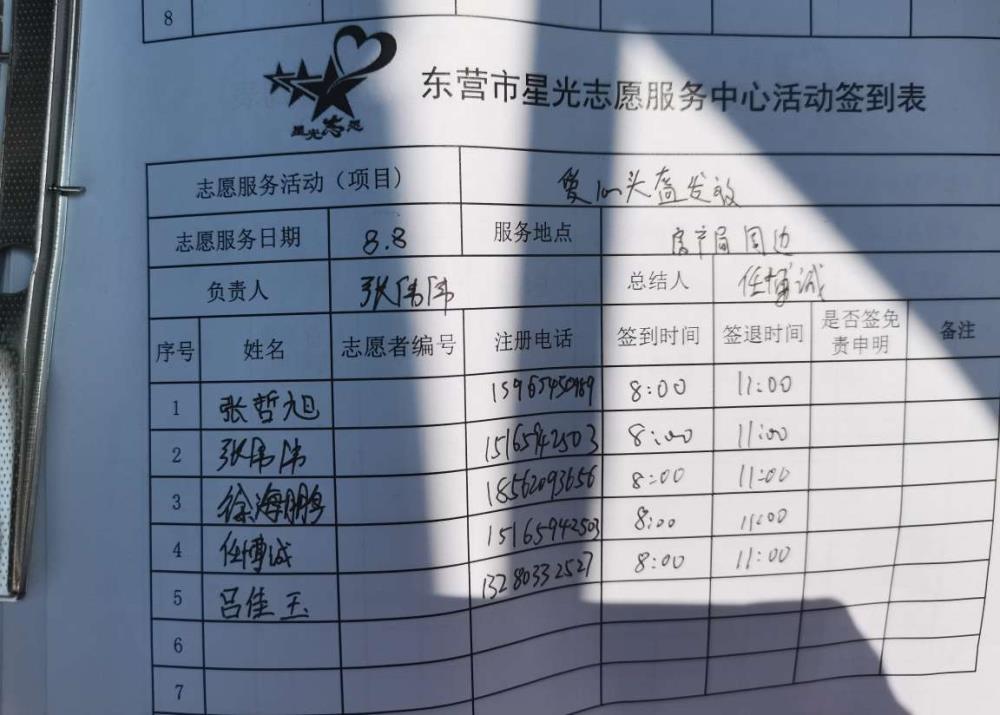 8
星光志愿
东营市星光志愿服务中心活动签到表
志愿服务活动（项目） 爱心头盔发放
志愿服务日期 8.8 服务地点 房产局周边
负责人 张伟伟 总结人 任博诚
序号 姓名 志愿者编号 注册电话 签到时间 签退时间 是否签免责申明 备注
1 张哲旭 15965450989 8:00 11:00
2 张伟伟 15165942503 8:00 11:00
3 徐海鹏 18562093656 8:00 11:00
4 任博诚 15165942503 8:00 11:00
5 吕佳玉 13280332527 8:00 11:00
6
7